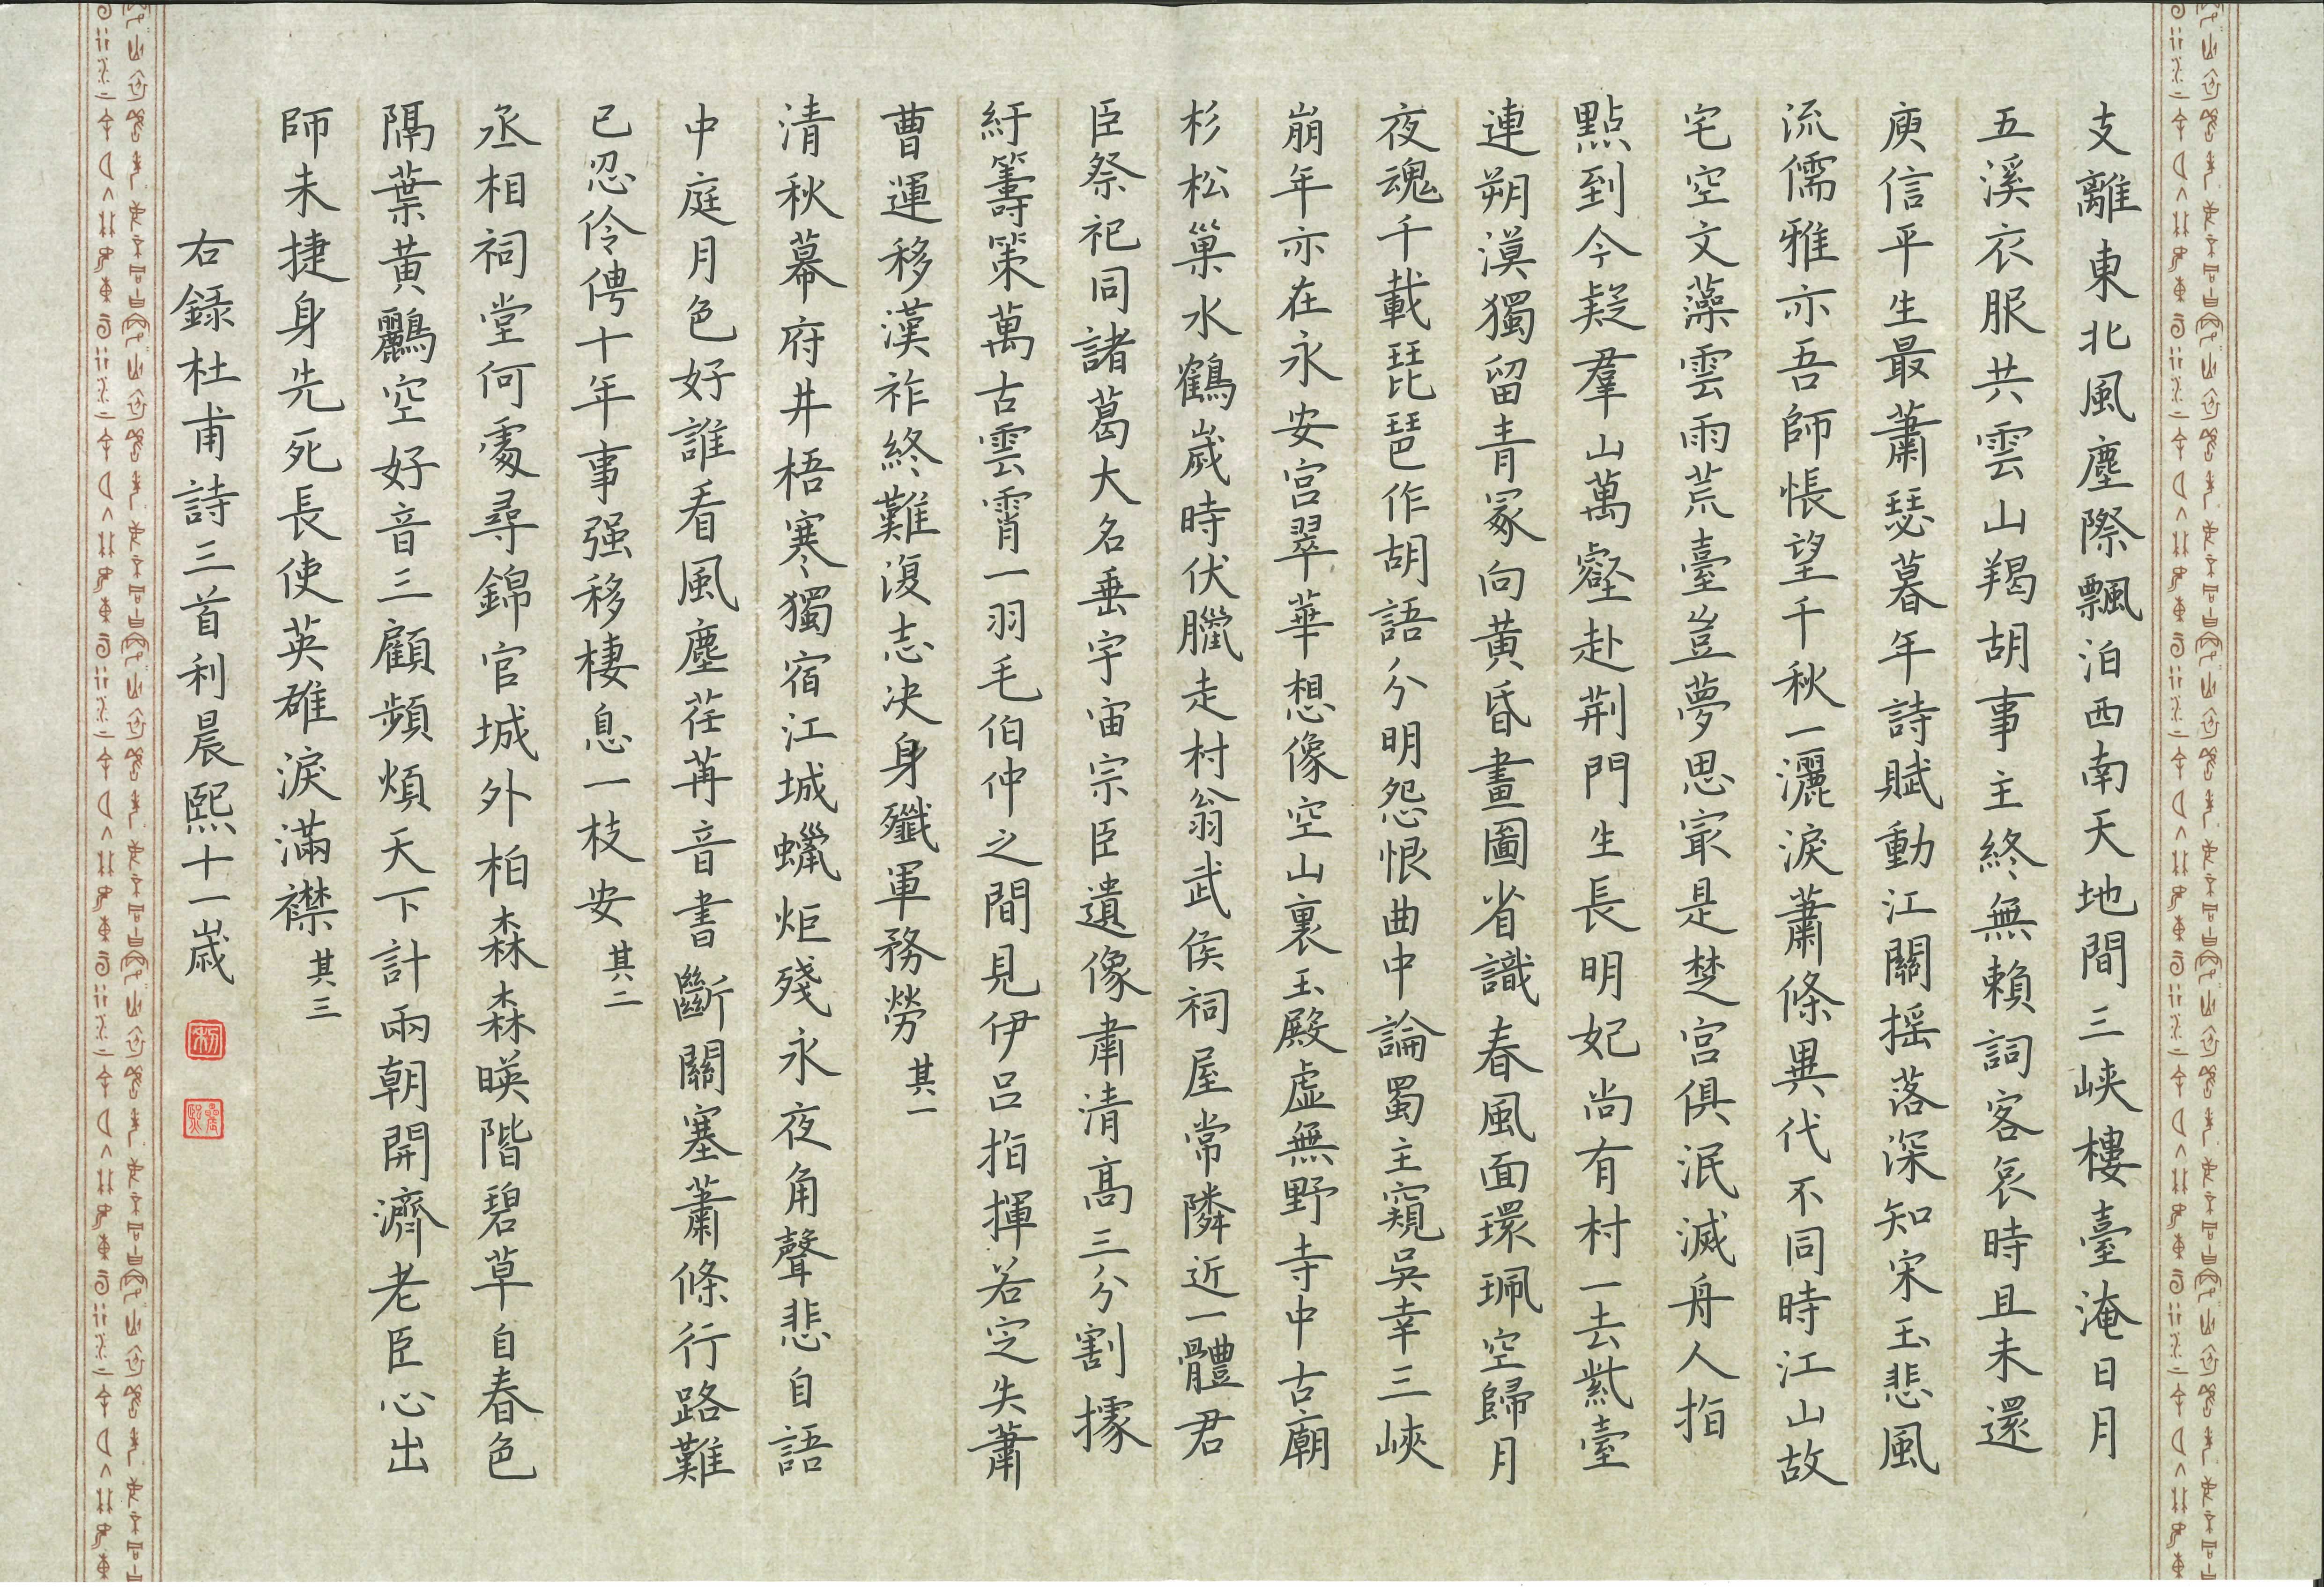 支離東北風塵際飄泊西南天地間三峽樓臺淹日月
五溪衣服共雲山羯胡事主終無賴詞客哀時且未還
庾信平生最蕭瑟暮年詩賦動江關摇落深知宋玉悲風
流儒雅亦吾師悵望千秋一灑淚蕭條異代不同時江山故
宅空文藻雲雨荒臺豈夢思冣是楚宮俱泯滅舟人指
點到今疑羣山萬壑赴荆門生長明妃尚有村一去紫臺
連朔漠獨留青冢向黃昏畫圖省識春風面環珮空歸月
夜魂千載琵琶作胡語分明怨恨曲中論蜀主窺吳幸三峽
崩年亦在永安宮翠華想像空山裏玉殿虛無野寺中古廟
杉松巢水鶴歲時伏臘走村翁武侯祠屋常隣近一體君
臣祭祀同諸葛大名垂宇宙宗臣遺像肅清高三分割據
紆籌策萬古雲霄一羽毛伯仲之間見伊呂指揮若定失蕭
曹運移漢祚終難復志决身殲軍務勞 其一
清秋幕府井梧寒獨宿江城蠟炬殘永夜角聲悲自語
中庭月色好誰看風塵荏苒音書斷關塞蕭條行路難
已忍伶俜十年事强移棲息一枝安 其二
丞相祠堂何處尋錦官城外柏森森暎階碧草自春色
隔葉黃鸝空好音三顧頻煩天下計兩朝開濟老臣心出
師未捷身先死長使英雄淚滿襟 其三
右錄杜甫詩三首利晨熙十一歲
利
晨熙